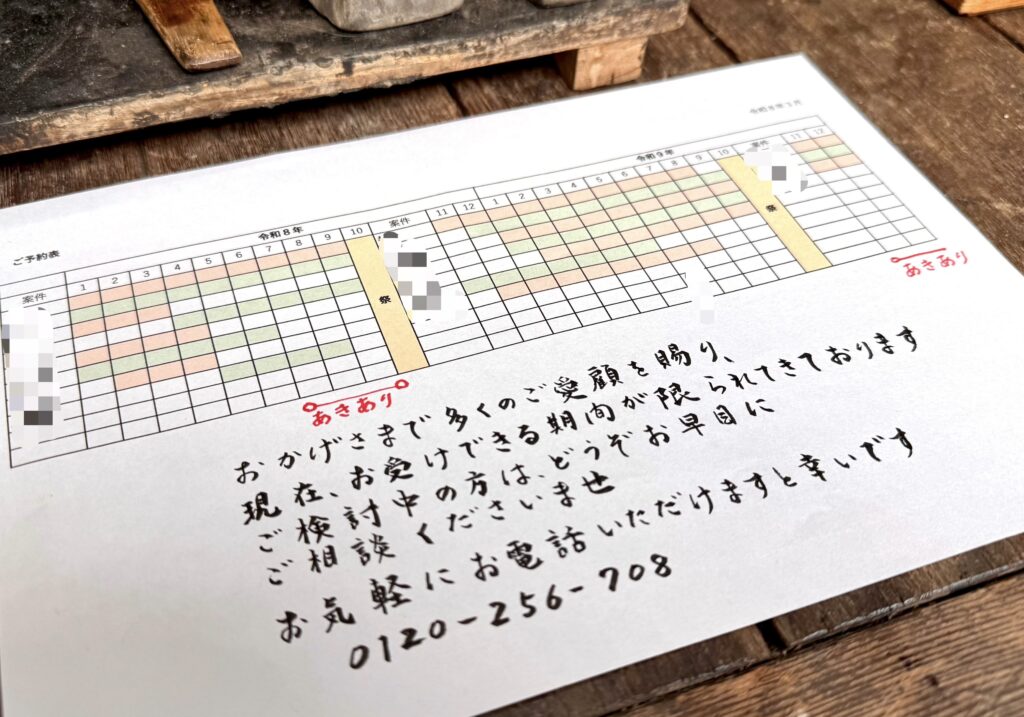 令和8年1月
ご予約表
令和8年
令和9年
案件 1 2 3 4 5 6 7 8 9 10 案件 11 12 1 2 3 4 5 6 7 8 9 10 案件 11 12
祭
祭
あきあり
あきあり
おかげさまで多くのご愛顧を賜り、
現在、お受けできる期間が限られてきております
ご検討中の方は、どうぞお早目に
ご相談くださいませ
お気軽にお電話いただけますと幸いです
0120-256-708